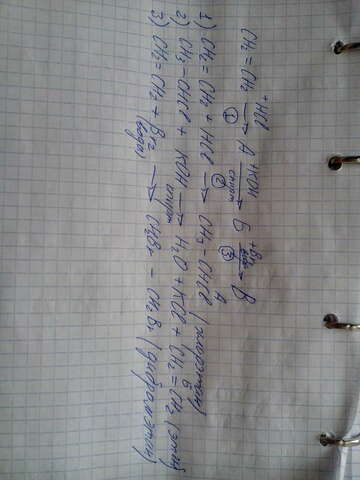 CH₂ = CH₂ +HCl → ① A +KOH спирт → ② Б +Br₂ вода → ③ В
1) CH₂ = CH₂ + HCl → CH₃ – CHCl (хлорэтан)
А
2) CH₃ – CHCl + KOH спирт → H₂O + KCl + CH₂ = CH₂ (этин)
Б
3) CH₂ = CH₂ + Br₂ (вода) → CH₂Br – CH₂Br (дибромэтин)